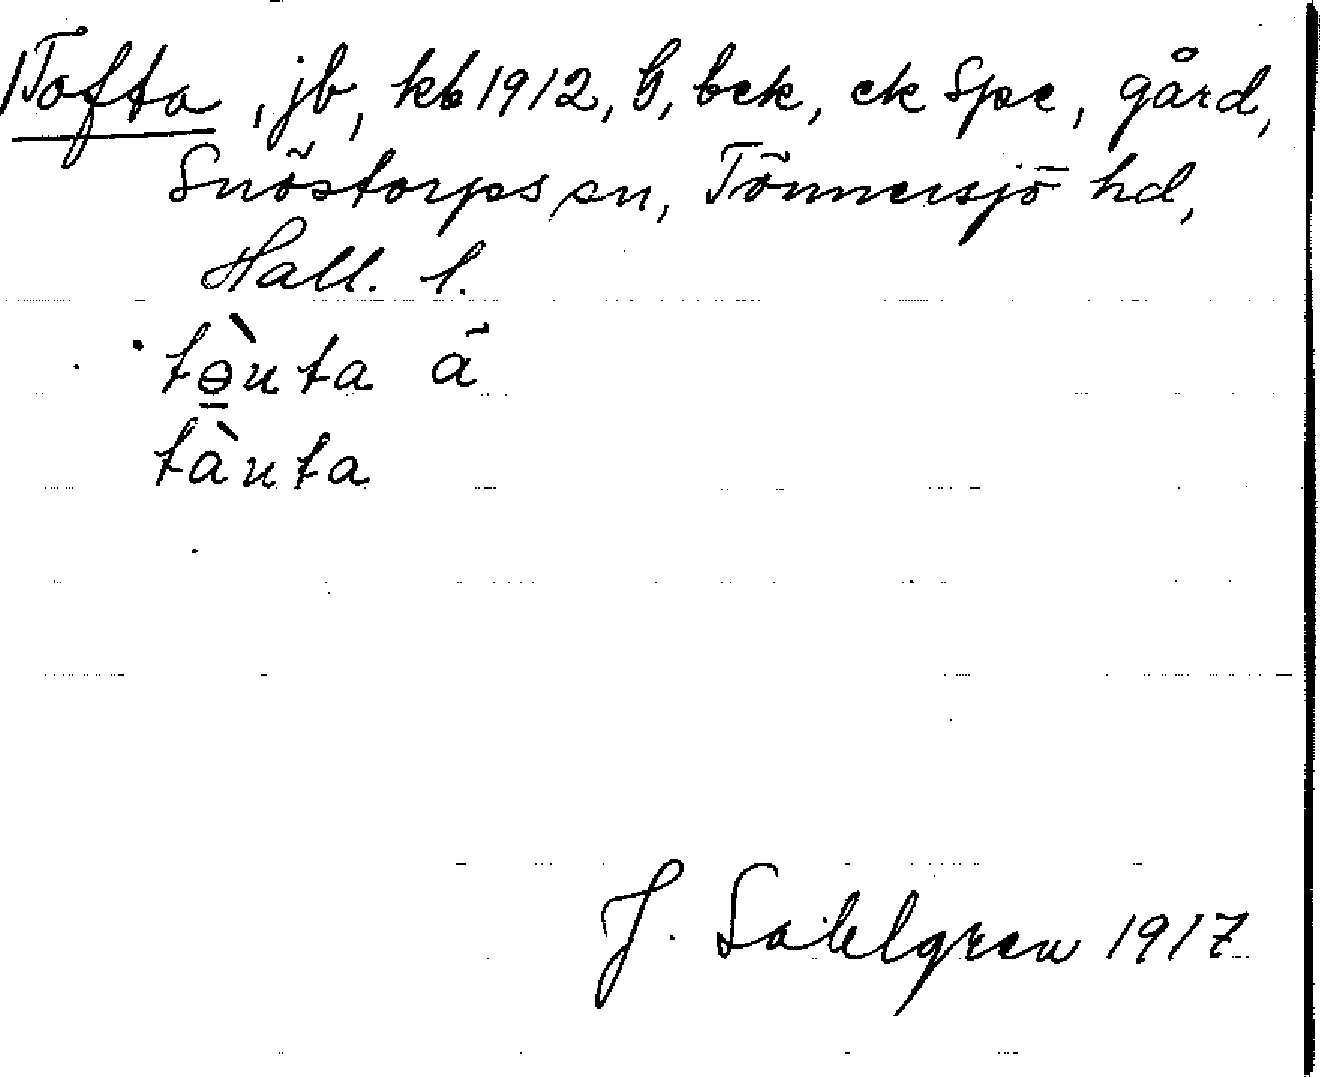 Tofta, jb, kb 1912, G, bck, ck Spc, gård,
Snöstorps sn, Tönnersjö hd,
Hall. l.
tə̀uta ä
tàuta
J. Sahlgren 1917